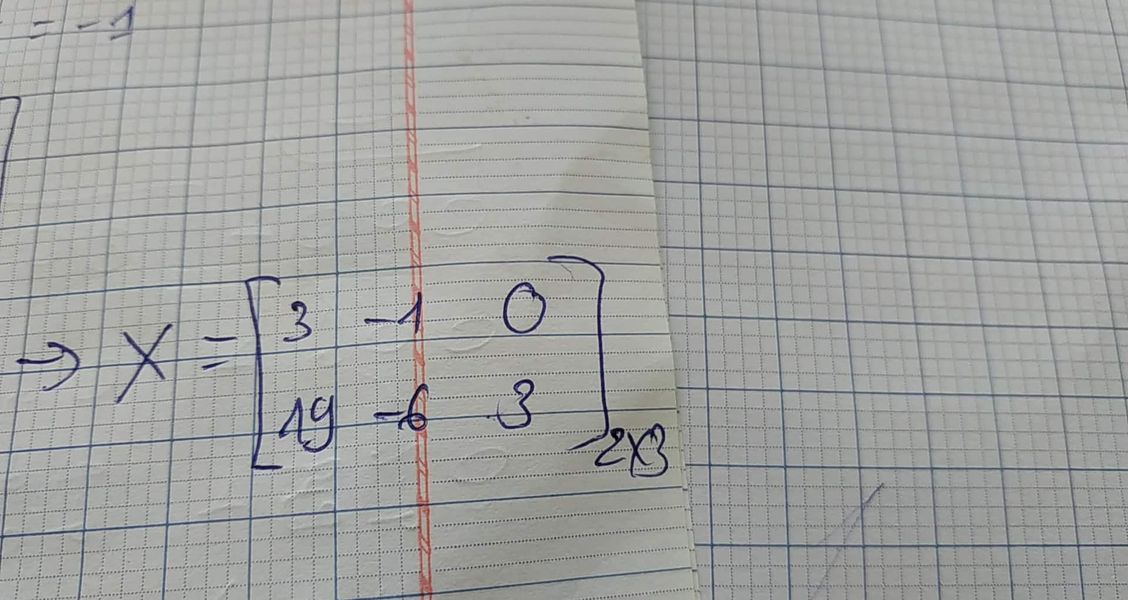 = -1
→ X = [ 3 -1 0
19 -6 3 ] 2x3